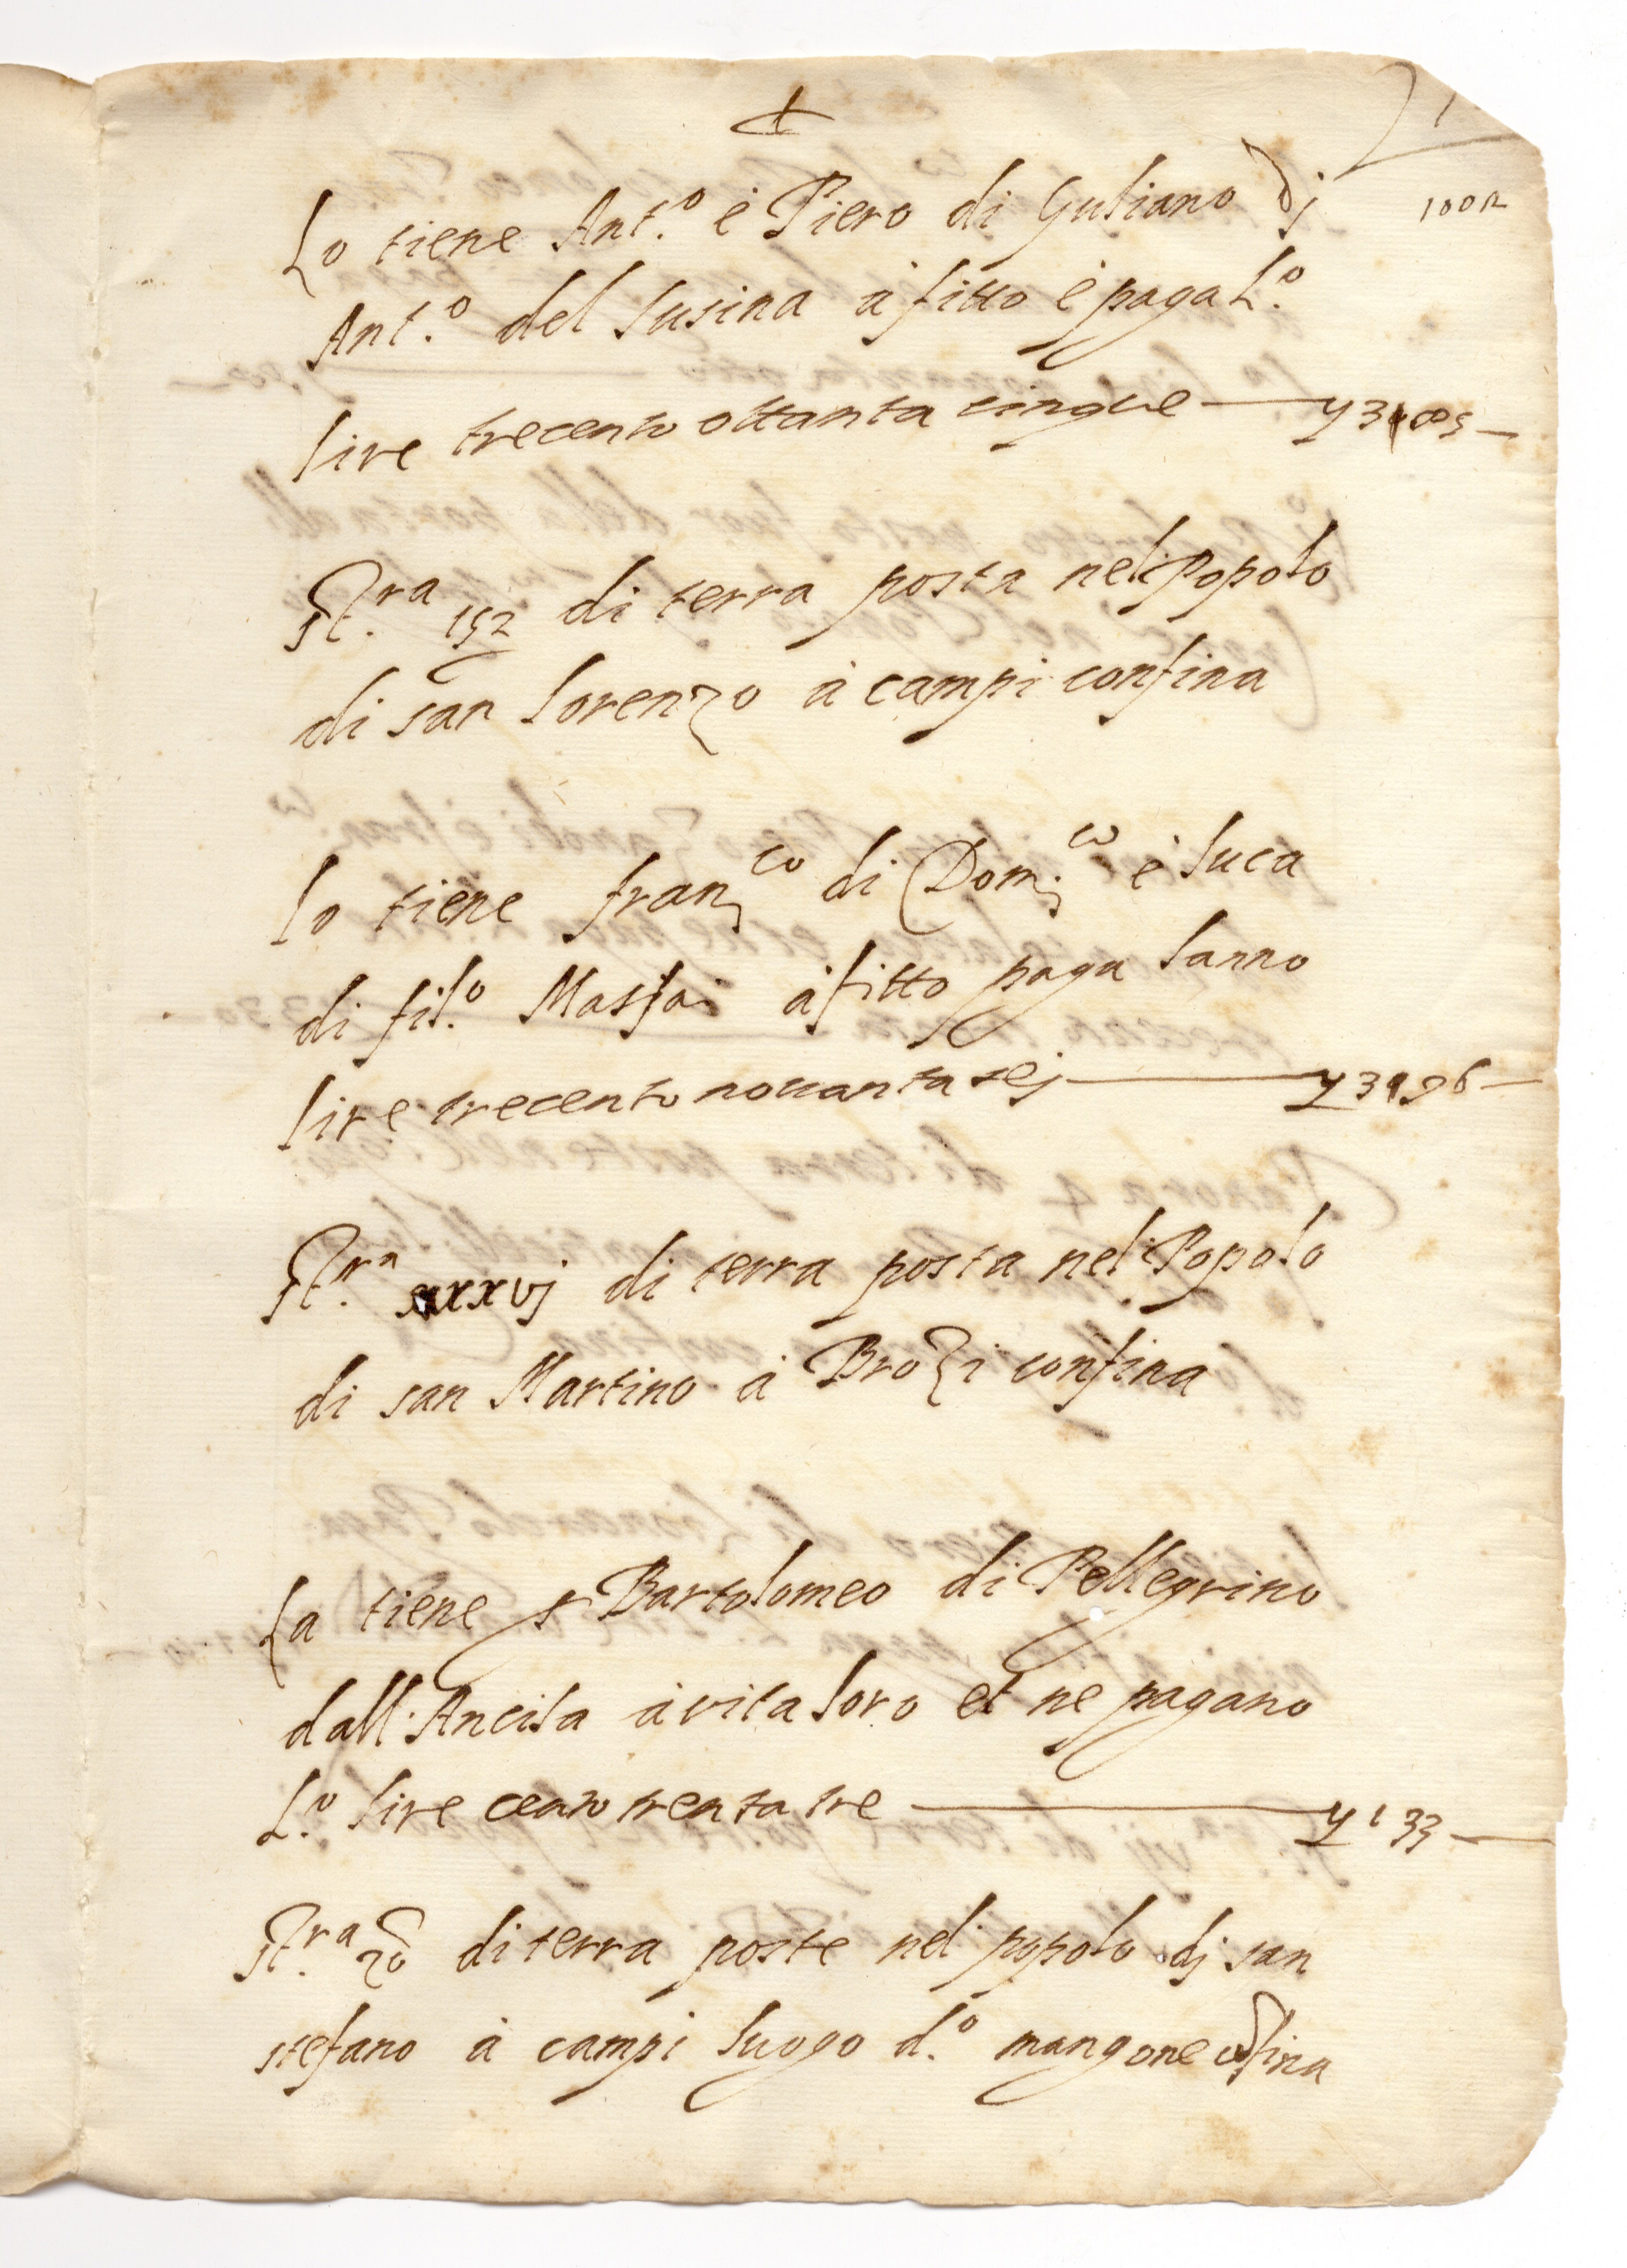 Lo tiene Ant.o è Piero di Guliano dj
Ant.o del Susina à fitto è paga L.o
lire trecento ottanta cinque — 385 —
St.ra 152 di terra posta nel Popolo
di san Lorenzo à campi confina
lo tiene fran.co di Dom.co è luca
di fil.o à fitto paga lanno
lire trecento novanta sej — 396 —
St.ra xxxvj di terra posta nel Popolo
di san Martino à Brozi confina
La tiene s Bartolomeo di Pellegrino
dall'Ancisa à vita loro et ne pagano
L.o lire cento trenta tre — 133 —
St.ra 20 di terra poste nel popolo dj san
stefano à campi luogo d.o mangone cōfina